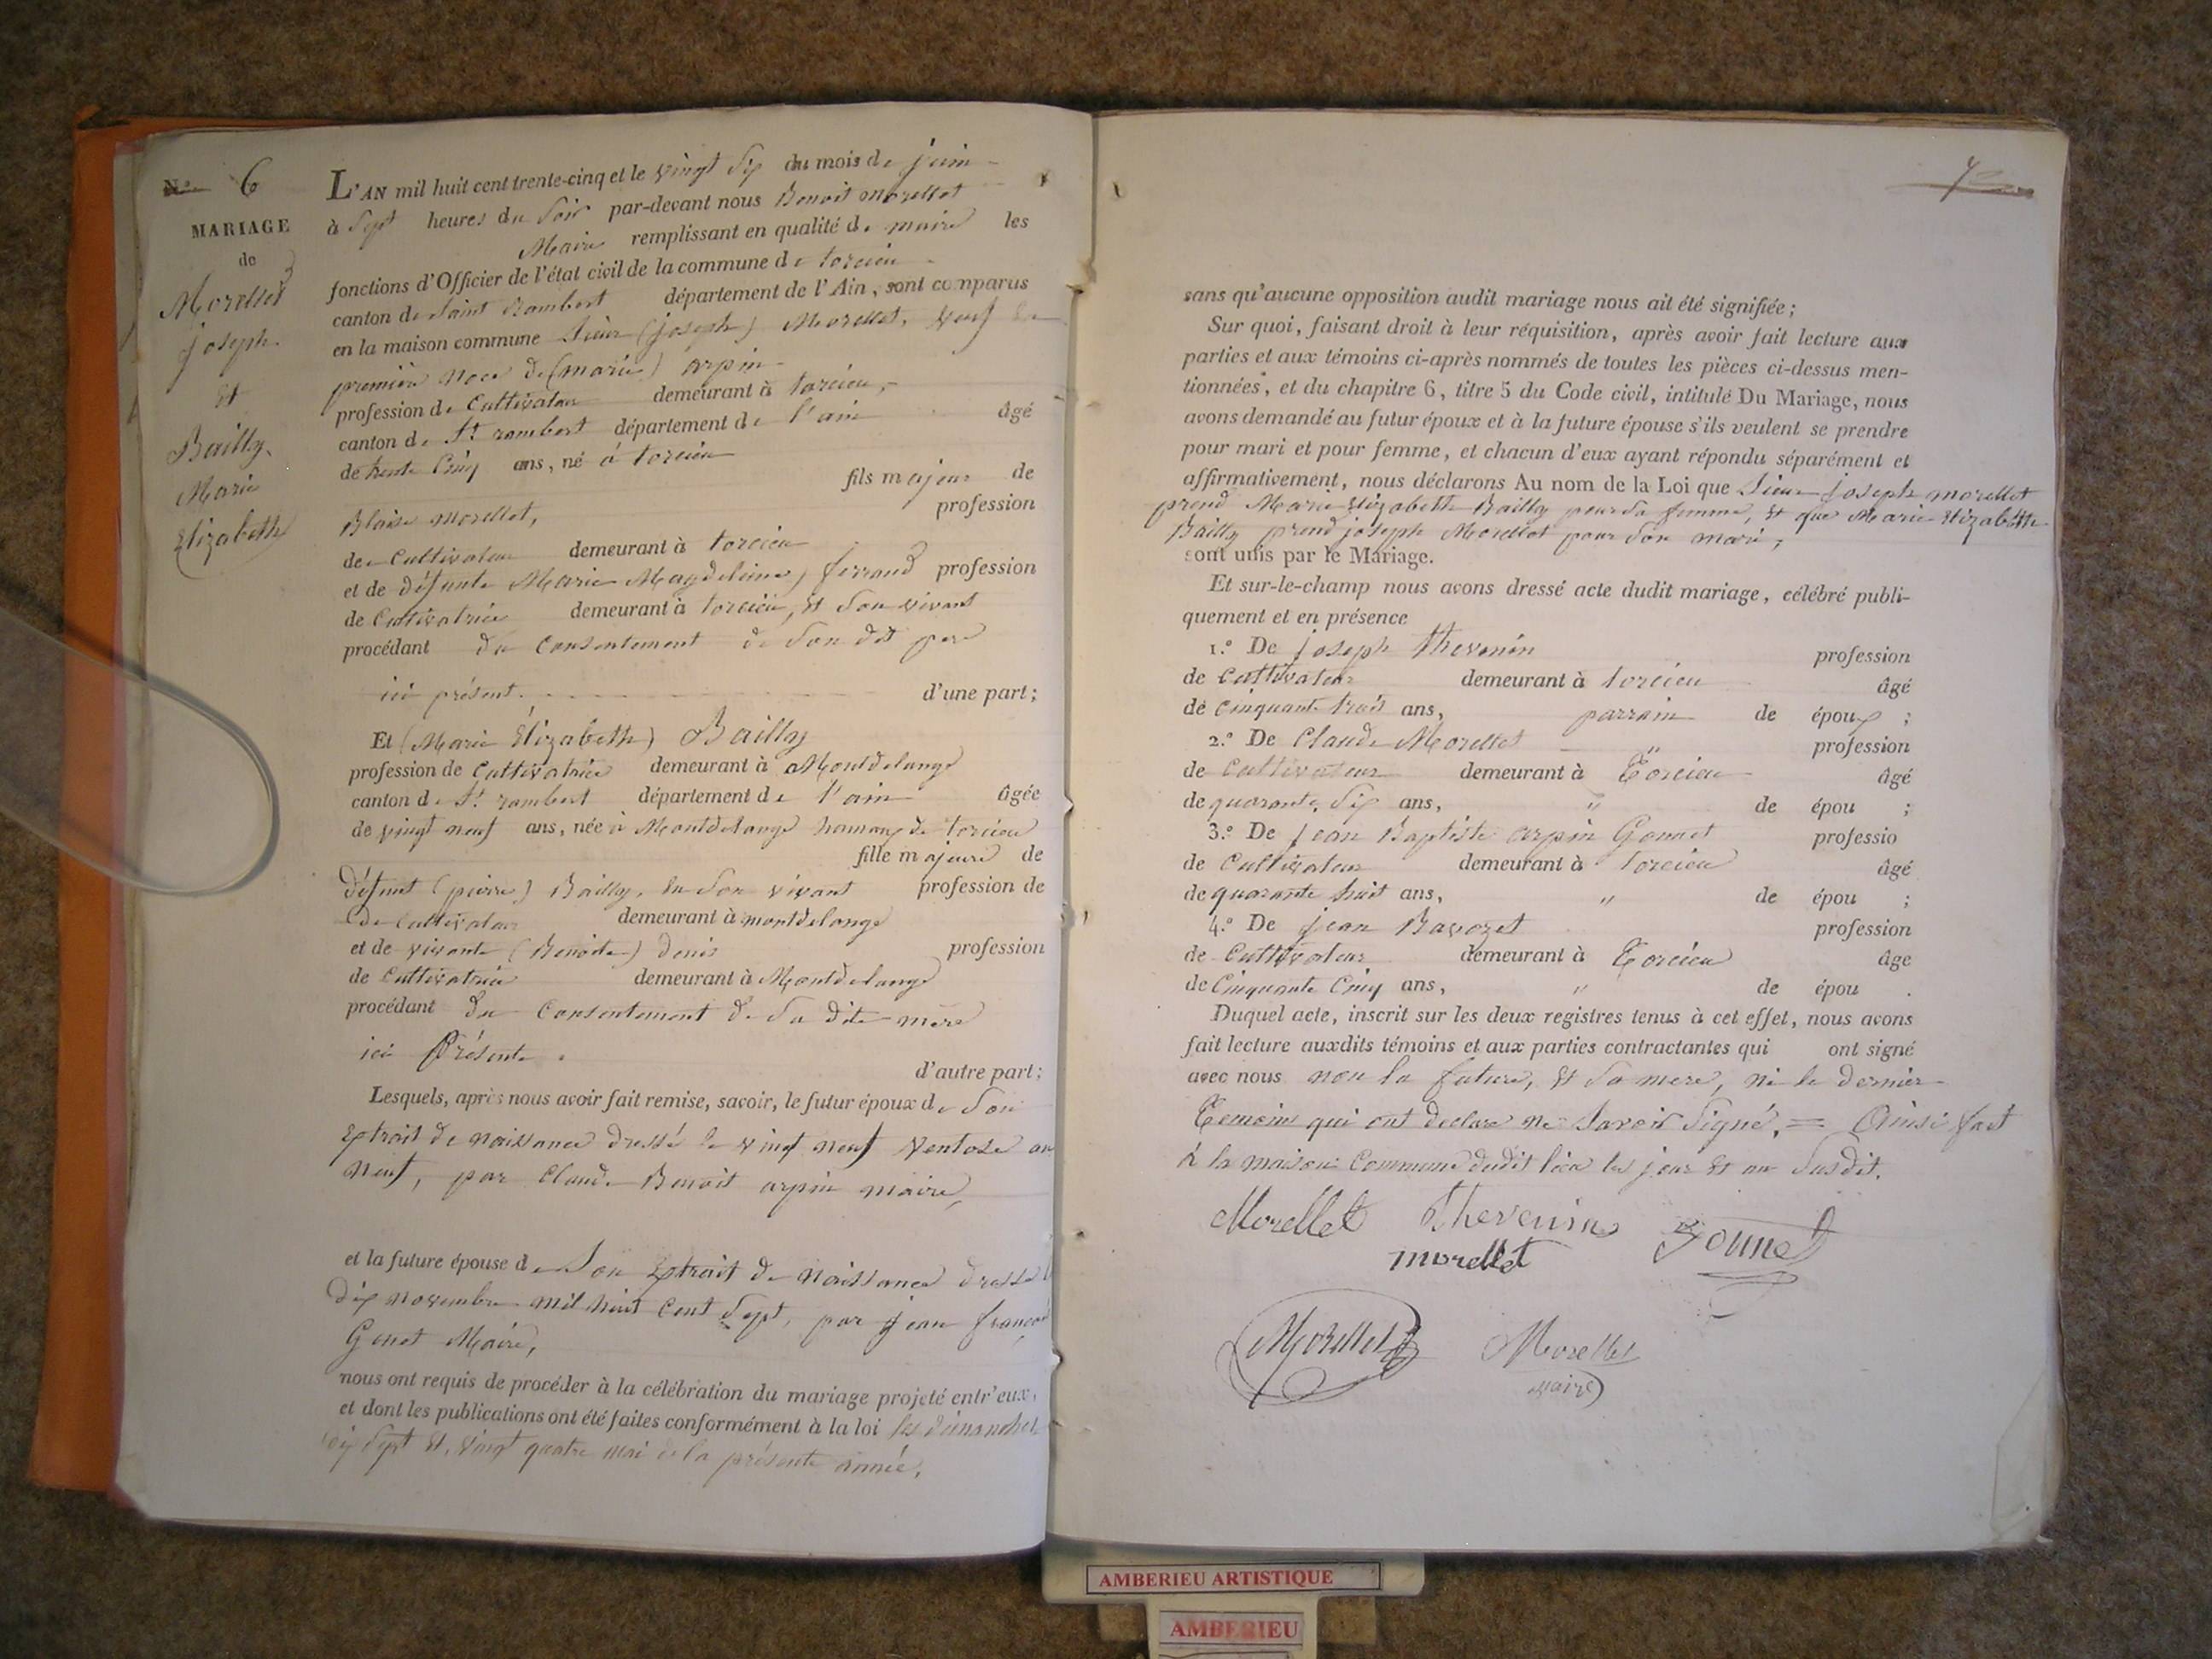 N.o 6
MARIAGE
de
Morellet
joseph
Et
Bailly
Marie
Elizabeth
L'AN mil huit cent trente-cinq et le vingt Six du mois de juin
à Sept heures du Soir par-devant nous Benoit Morellet
Maire remplissant en qualité de maire les
fonctions d'Officier de l'état civil de la commune de torcieu
canton de Saint Rambert département de l'Ain, sont comparus
en la maison commune Sieur (joseph) Morellet, veuf En
première noce de (marie) arpin
profession de Cultivateur demeurant à torcieu,
canton de St rambert département de l'ain âgé
de trente Cinq ans, né à torcieu
fils majeur de
Blaise Morellet, profession
de Cultivateur demeurant à torcieu
et de défunte Marie Magdeleine) ferrand profession
de Cultivatrice demeurant à torcieu, Et Son vivant
procédant du Consentement de Son dit pere
ici présent. d'une part;
Et (Marie Elizabeth) Bailly
profession de Cultivatrice demeurant à Montdelange
canton de St rambert département de l'ain âgée
de vingt neuf ans, née à Montdelange hamaux de torcieu
fille majeure de
défunt (pierre) Bailly, En Son vivant profession de
de Cultivateur demeurant à montdelange
et de vivante (Benoite) Denis profession
de Cultivatrice demeurant à Montdelange
procédant du Consentement de Sa dite mere
ici Présente.
d'autre part;
Lesquels, après nous avoir fait remise, savoir, le futur époux de Son
Extrait de naissance dressé le vingt neuf Ventose an
neuf, par Claude Benoit arpin maire,
et la future épouse de Son Extrait de naissance dressé le
dix novembre mil huit Cent Sept, par jean françois
Gonet Maire,
nous ont requis de procéder à la célébration du mariage projeté entr'eux,
et dont les publications ont été faites conformément à la loi les dimanches
dix Sept Et vingt quatre mai de la présente année.
sans qu'aucune opposition audit mariage nous ait été signifiée;
Sur quoi, faisant droit à leur réquisition, après avoir fait lecture aux
parties et aux témoins ci-après nommés de toutes les pièces ci-dessus men-
tionnées, et du chapitre 6, titre 5 du Code civil, intitulé Du Mariage, nous
avons demandé au futur époux et à la future épouse s'ils veulent se prendre
pour mari et pour femme, et chacun d'eux ayant répondu séparément et
affirmativement, nous déclarons Au nom de la Loi que Sieur joseph morellet
prend Marie Elizabeth Bailly pour Sa femme, Et que Marie Elizabeth
Bailly prend joseph Morellet pour Son mari,
sont unis par le Mariage.
Et sur-le-champ nous avons dressé acte dudit mariage, célébré publi-
quement et en présence
1.º De joseph thevenin profession
de Cultivateur demeurant à torcieu âgé
de Cinquante trois ans, parrain de époux ;
2.º De Claude Morellet " profession
de Cultivateur demeurant à Torcieu âgé
de quarante Six ans, " de épou ;
3.º De jean Baptiste arpin Gonnet professio
de Cultivateur demeurant à Torcieu âgé
de quarante huit ans, " de épou ;
4.º De jean Bavozet profession
de Cultivateur demeurant à Torcieu âge
de Cinquante Cinq ans, " de épou .
Duquel acte, inscrit sur les deux registres tenus à cet effet, nous avons
fait lecture auxdits témoins et aux parties contractantes qui ont signé
avec nous non la future, Et Sa mere, ni le dernier
Temoins qui ont declare ne Savoir Signé. = Ainsi fait
à la maison Commune dudit lieu les jour Et an Susdit.
Morellet Thevenin Gounet
morellet
Morellet Morellet
maire
AMBERIEU ARTISTIQUE
AMBERIEU